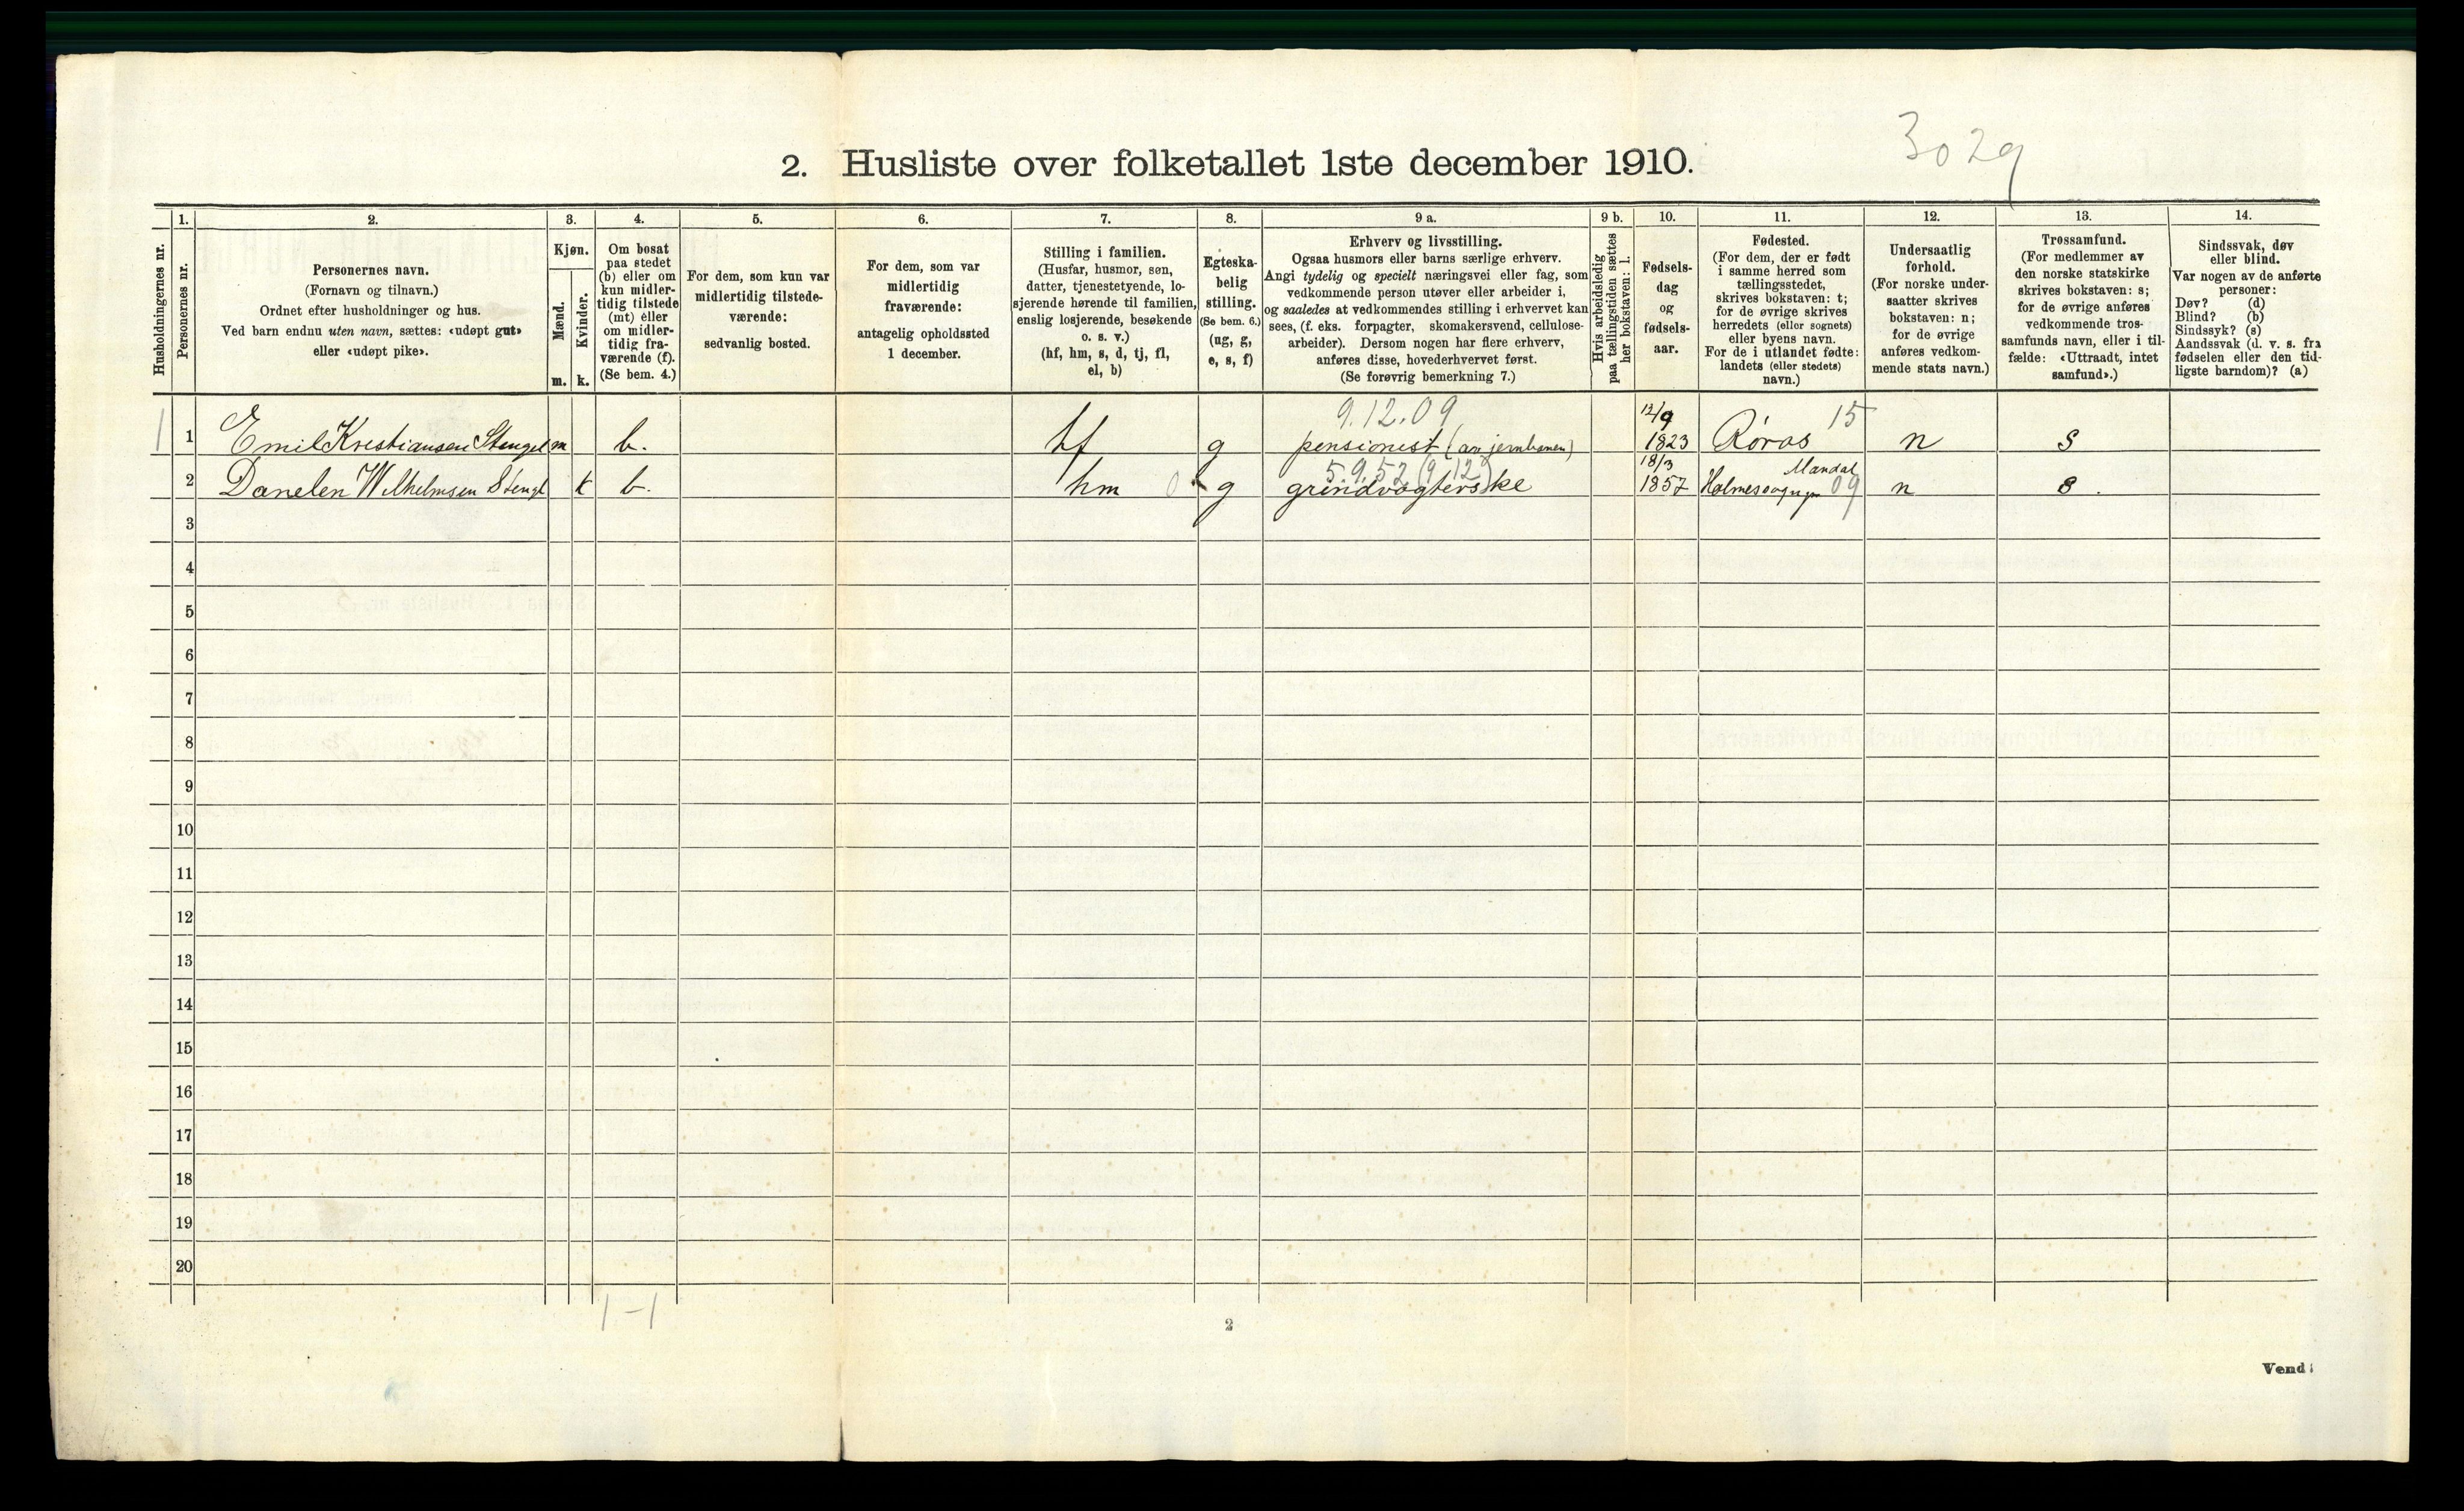 3029
2. Husliste over folketallet 1ste december 1910.
Husholdningernes nr.
1.
Personernes nr.
2.
Personernes navn.
(Fornavn og tilnavn.)
Ordnet efter husholdninger og hus.
Ved barn endnu uten navn, sættes: «udøpt gut»
eller «udøpt pike».
3.
Kjøn.
Mænd.
Kvinder.
m. k.
4.
Om bosat
paa stedet
(b) eller om
kun midler-
tidig tilstede
(mt) eller
om midler-
tidig fra-
værende (f).
(Se bem. 4.)
5.
For dem, som kun var
midlertidig tilstede-
værende:
sedvanlig bosted.
6.
For dem, som var
midlertidig
fraværende:
antagelig opholdssted
1 december.
7.
Stilling i familien.
(Husfar, husmor, søn,
datter, tjenestetyende, lo-
sjerende hørende til familien,
enslig losjerende, besøkende
o. s. v.)
(hf, hm, s, d, tj, fl,
el, b)
8.
Egteska-
belig
stilling.
(Se bem. 6.)
(ug, g,
e, s, f)
9 a.
Erhverv og livsstilling.
Ogsaa husmors eller barns særlige erhverv.
Angi tydelig og specielt næringsvei eller fag, som
vedkommende person utøver eller arbeider i,
og saaledes at vedkommendes stilling i erhvervet kan
sees, (f. eks. forpagter, skomakersvend, cellulose-
arbeider). Dersom nogen har flere erhverv,
anføres disse, hovederhvervet først.
(Se forøvrig bemerkning 7.)
9 b.
Hvis arbeidsledig
paa tællingstiden sættes
her bokstaven: l.
10.
Fødsels-
dag
og
fødsels-
aar.
11.
Fødested.
(For dem, der er født
i samme herred som
tællingsstedet,
skrives bokstaven: t;
for de øvrige skrives
herredets (eller sognets)
eller byens navn.
For de i utlandet fødte:
landets (eller stedets)
navn.)
12.
Undersaatlig
forhold.
(For norske under-
saatter skrives
bokstaven: n;
for de øvrige
anføres vedkom-
mende stats navn.)
13.
Trossamfund.
(For medlemmer av
den norske statskirke
skrives bokstaven: s;
for de øvrige anføres
vedkommende tros-
samfunds navn, eller i til-
fælde: «Uttraadt, intet
samfund».)
14.
Sindssvak, døv
eller blind.
Var nogen av de anførte
personer:
Døv? (d)
Blind? (b)
Sindssyk? (s)
Aandssvak (d. v. s. fra
fødselen eller den tid-
ligste barndom)? (a)
9.12.09 12/9 15
1 1 Emil Kristiansen Stengel m b. hf g pensionist (av jernbanen) 1823 Røros n s
5.9.52 (9.12) 18/3 Mandal
2 Danelen Wilhelmsen Stengl k b. hm 0 g grindvogterske 1857 Holmesogn 09 n s.
3
4
5
6
7
8
9
10
11
12
13
14
15
16
17
18
19
20
1 – 1
2
Vend!